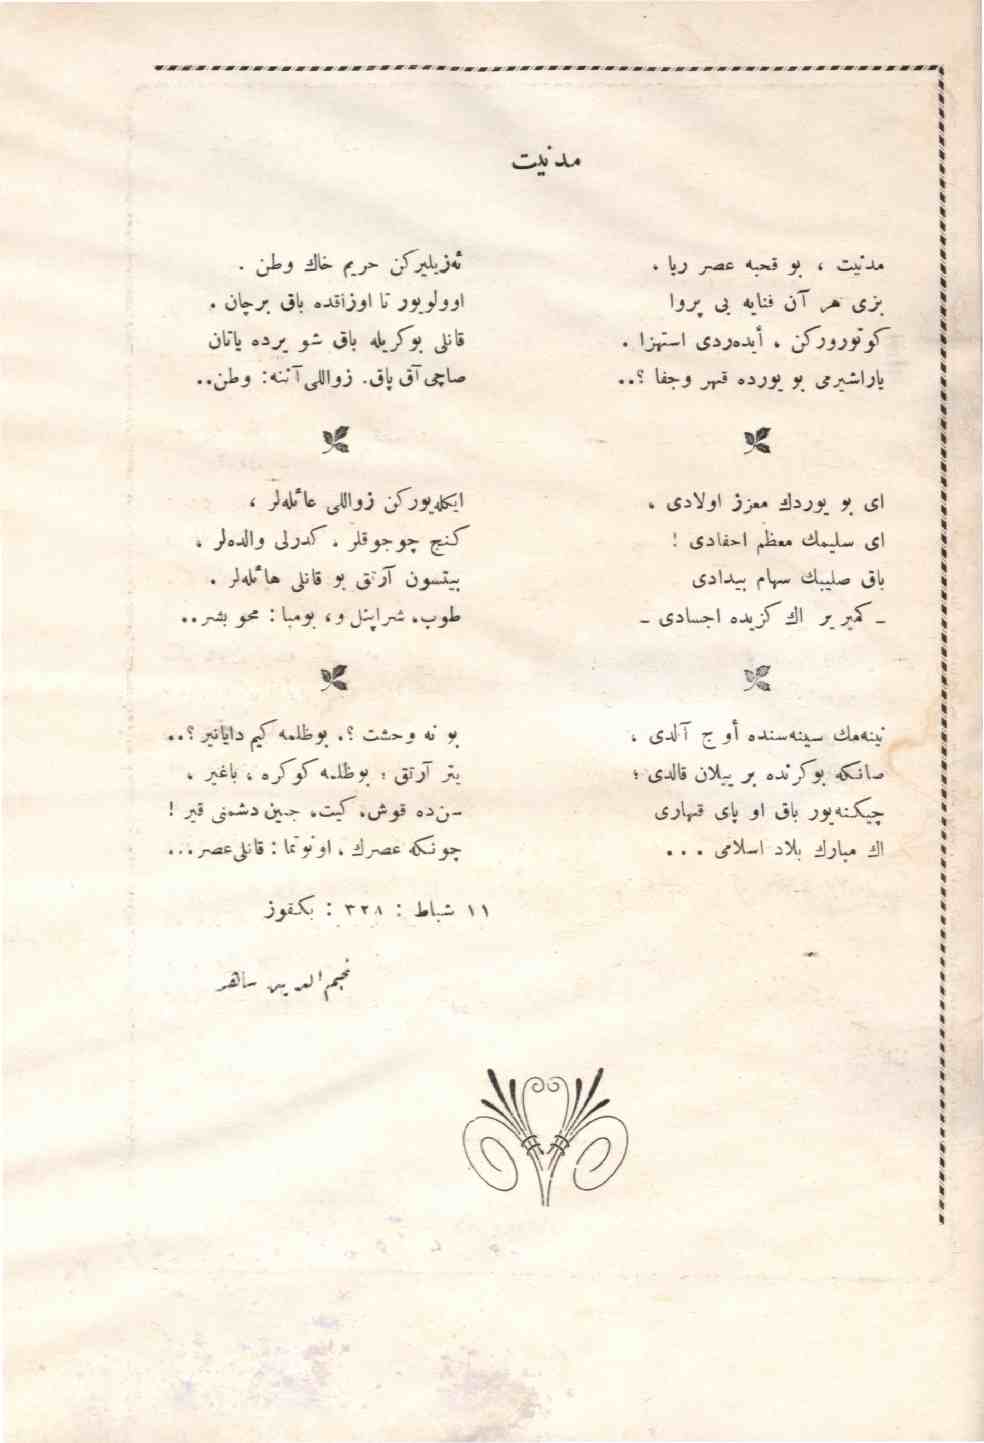 مدنیت
مدنیت ، بو قحبه عصر ریا .
بزی هر آن فنایه بی پروا
کوتورورکن ، أیده‌ردی استهزا .
یاراشیرمی بو یورده قهر وجفا ؟..
ای بو یوردك معزز اولادی ،
ای سلیمك معظم احفادی !
باق صلیبك سهام بیدادی
ـ کمیریر اك کزیده اجسادی ـ
نینه‌مك سینه‌سنده أوج آلدی ،
صانکه بوکرنده بر ییلان قالدی ؛
چیکنه‌یور باق او پای قهاری
اك مبارك بلاد اسلامی ...
ئه‌زیلیرکن حریم خاك وطن .
اوولویور تا اوزاقده باق برچان .
قانلی بوکریله باق شو یرده یاتان
صاچی آق پاق. زواللی آننه: وطن..
ایکله‌یورکن زواللی عائله‌لر ،
کنج چوجوقلر . کدرلی والده‌لر ،
بیتسون آرتق بو قانلی هائله‌لر .
طوب، شراپنل و، بومبا : محو بشر..
بو نه وحشت ؟. بوظلمه کیم دایانیر ؟..
یتر آرتق : بوظلمه کوکره ، باغیر ،
سن‌ده قوش، کیت، جبین دشمنی قیر !
چونکه عصرك ، اونوتما : قانلی عصر...
۱۱ شباط : ۳۲۸ : بکقوز
نجم الدین ساهر